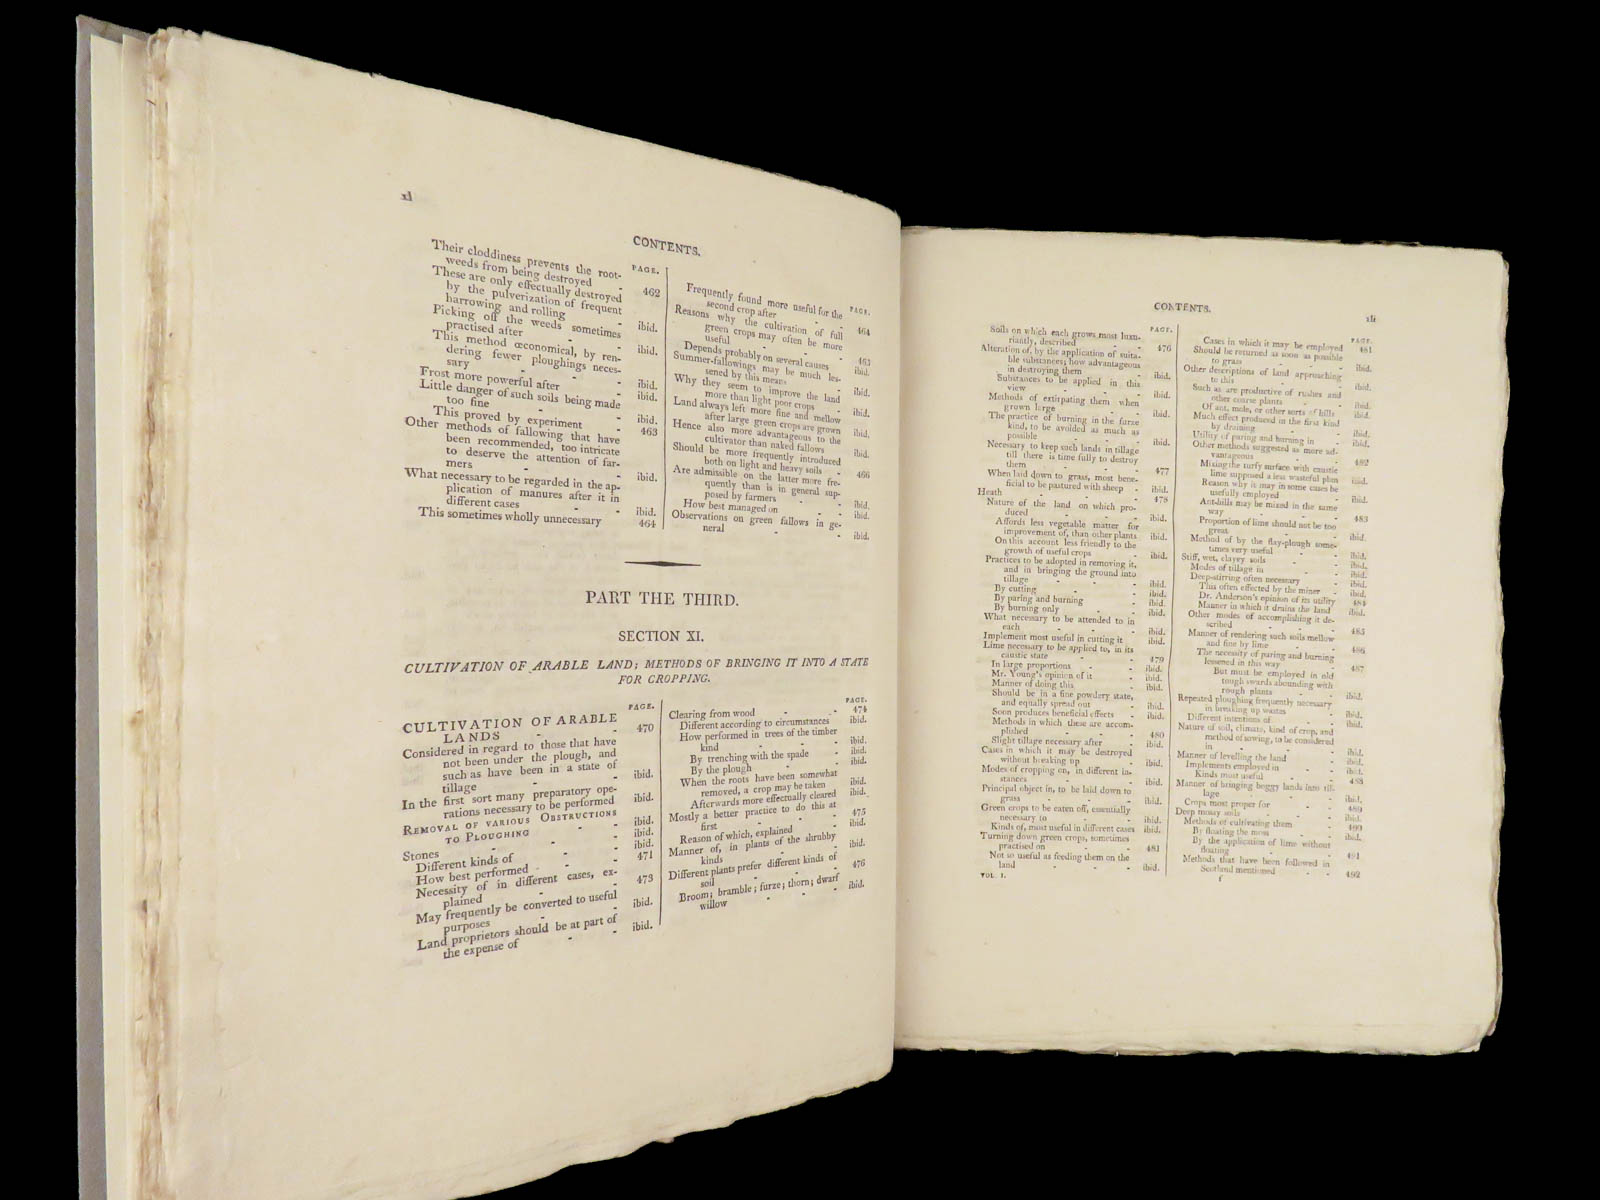 xl
CONTENTS.
PAGE.
Their cloddiness prevents the root-
weeds from being destroyed - 462
These are only effectually destroyed
by the pulverization of frequent
harrowing and rolling - ibid.
Picking off the weeds sometimes
practised after - - ibid.
This method œconomical, by ren-
dering fewer ploughings neces-
sary - - - ibid.
Frost more powerful after - ibid.
Little danger of such soils being made
too fine - - ibid.
This proved by experiment - 463
Other methods of fallowing that have
been recommended, too intricate
to deserve the attention of far-
mers - - ibid.
What necessary to be regarded in the ap-
plication of manures after it in
different cases - - ibid.
This sometimes wholly unnecessary 464
PAGE.
Frequently found more useful for the
second crop after - - 464
Reasons why the cultivation of full
green crops may often be more
useful - - - 465
Depends probably on several causes ibid.
Summer-fallowings may be much les-
sened by this means - ibid.
Why they seem to improve the land
more than light poor crops - ibid.
Land always left more fine and mellow
after large green crops are grown ibid.
Hence also more advantageous to the
cultivator than naked fallows ibid.
Should be more frequently introduced
both on light and heavy soils - 466
Are admissible on the latter more fre-
quently than is in general sup-
posed by farmers - - ibid.
How best managed on - - ibid.
Observations on green fallows in ge-
neral - - ibid.
PART THE THIRD.
SECTION XI.
CULTIVATION OF ARABLE LAND; METHODS OF BRINGING IT INTO A STATE
FOR CROPPING.
PAGE.
CULTIVATION OF ARABLE
LANDS - - 470
Considered in regard to those that have
not been under the plough, and
such as have been in a state of
tillage - - ibid.
In the first sort many preparatory ope-
rations necessary to be performed ibid.
REMOVAL OF VARIOUS OBSTRUCTIONS
TO PLOUGHING - - ibid.
Stones - - - ibid.
Different kinds of - - ibid.
How best performed - - 471
Necessity of in different cases, ex-
plained - - 473
May frequently be converted to useful
purposes - - ibid.
Land proprietors should be at part of
the expense of - - ibid.
PAGE.
Clearing from wood - - 474
Different according to circumstances ibid.
How performed in trees of the timber
kind - - - ibid.
By trenching with the spade - ibid.
By the plough - - ibid.
When the roots have been somewhat
removed, a crop may be taken ibid.
Afterwards more effectually cleared ibid.
Mostly a better practice to do this at
first - - - 475
Reason of which, explained - ibid.
Manner of, in plants of the shrubby
kinds - - - ibid.
Different plants prefer different kinds of
soil - - - 476
Broom; bramble; furze; thorn; dwarf
willow - - - ibid.
CONTENTS.
xli
PAGE.
Soils on which each grows most luxu-
riantly, described - - 476
Alteration of, by the application of suita-
ble substances; how advantageous
in destroying them - ibid.
Substances to be applied in this
view - - - ibid.
Methods of extirpating them when
grown large - - ibid.
The practice of burning in the furze
kind, to be avoided as much as
possible - - - ibid.
Necessary to keep such lands in tillage
till there is time fully to destroy
them - - - 477
When laid down to grass, most bene-
ficial to be pastured with sheep - ibid.
Heath - - - 478
Nature of the land on which pro-
duced - - - ibid.
Affords less vegetable matter for
improvement of, than other plants ibid.
On this account less friendly to the
growth of useful crops - ibid.
Practices to be adopted in removing it,
and in bringing the ground into
tillage - - - ibid.
By cutting - - ibid.
By paring and burning - ibid.
By burning only - - ibid.
What necessary to be attended to in
each - - - ibid.
Implement most useful in cutting it ibid.
Lime necessary to be applied to, in its
caustic state - - 479
In large proportions - - ibid.
Mr. Young's opinion of it - ibid.
Manner of doing this - ibid.
Should be in a fine powdery state,
and equally spread out - ibid.
Soon produces beneficial effects - ibid.
Methods in which these are accom-
plished - - - 480
Slight tillage necessary after - ibid.
Cases in which it may be destroyed
without breaking up - ibid.
Modes of cropping on, in different in-
stances - - - ibid.
Principal object in, to be laid down to
grass - - - ibid.
Green crops to be eaten off, essentially
necessary to - - ibid.
Kinds of, most useful in different cases ibid.
Turning down green crops, sometimes
practised on - - 481
Not so useful as feeding them on the
land - - - ibid.
VOL. I.
PAGE.
Cases in which it may be employed 481
Should be returned as soon as possible
to grass - - ibid.
Other descriptions of land approaching
to this - - - ibid.
Such as are productive of rushes and
other coarse plants - - ibid.
Of ant, mole, or other sorts of hills ibid.
Much effect produced in the first kind
by draining - - ibid.
Utility of paring and burning in - ibid.
Other methods suggested as more ad-
vantageous - - 482
Mixing the turfy surface with caustic
lime supposed a less wasteful plan ibid.
Reason why it may in some cases be
usefully employed - ibid.
Ant-hills may be mixed in the same
way - - - 483
Proportion of lime should not be too
great - - - ibid.
Method of by the flay-plough some-
times very useful - - ibid.
Stiff, wet, clayey soils - - ibid.
Modes of tillage in - - ibid.
Deep-stirring often necessary - ibid.
This often effected by the miner - ibid.
Dr. Anderson's opinion of its utility 484
Manner in which it drains the land ibid.
Other modes of accomplishing it de-
scribed - - - 485
Manner of rendering such soils mellow
and fine by lime - - 486
The necessity of paring and burning
lessened in this way - 487
But must be employed in old
tough swards abounding with
rough plants - - ibid.
Repeated ploughing frequently necessary
in breaking up wastes - ibid.
Different intentions of - - ibid.
Nature of soil, climate, kind of crop, and
method of sowing, to be considered
in - - - ibid.
Manner of levelling the land - ibid.
Implements employed in - ibid.
Kinds most useful - - 488
Manner of bringing boggy lands into til-
lage - - - ibid.
Crops most proper for - - 489
Deep mossy soils - - ibid.
Methods of cultivating them - 490
By floating the moss - - ibid.
By the application of lime without
floating - - 491
Methods that have been followed in
Scotland mentioned - - 492
f